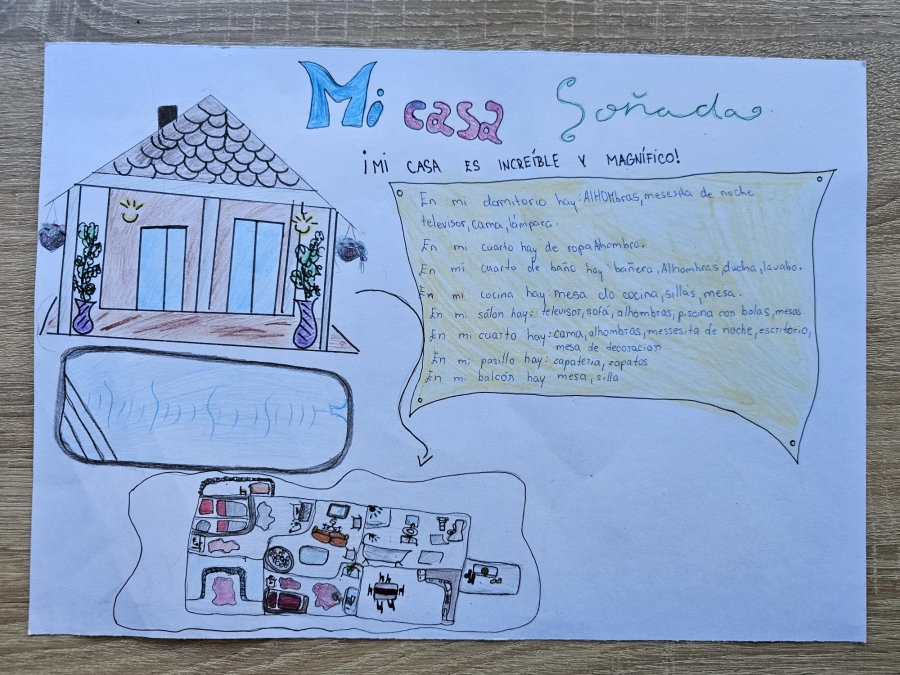 Mi casa Soñada
¡MI CASA ES INCREÍBLE Y MAGNÍFICO!
En mi dormitorio hay: AlHOMbras, mesesita de noche
televisor, cama, lámpara.
En mi cuarto hay de ropa Alhombra.
En mi cuarto de baño hay bañera, Alhombras, ducha, lavabo.
En mi cocina hay mesa do cocina, sillas, mesa.
En mi sálon hay: televisor, sofá, alhombras, piscina con bolas, mesas
En mi cuarto hay: cama, alhombras, messesita de noche, escritorio,
mesa de decoracion
En mi pasillo hay: zapateria, zapatos
En mi balcón hay mesa, silla